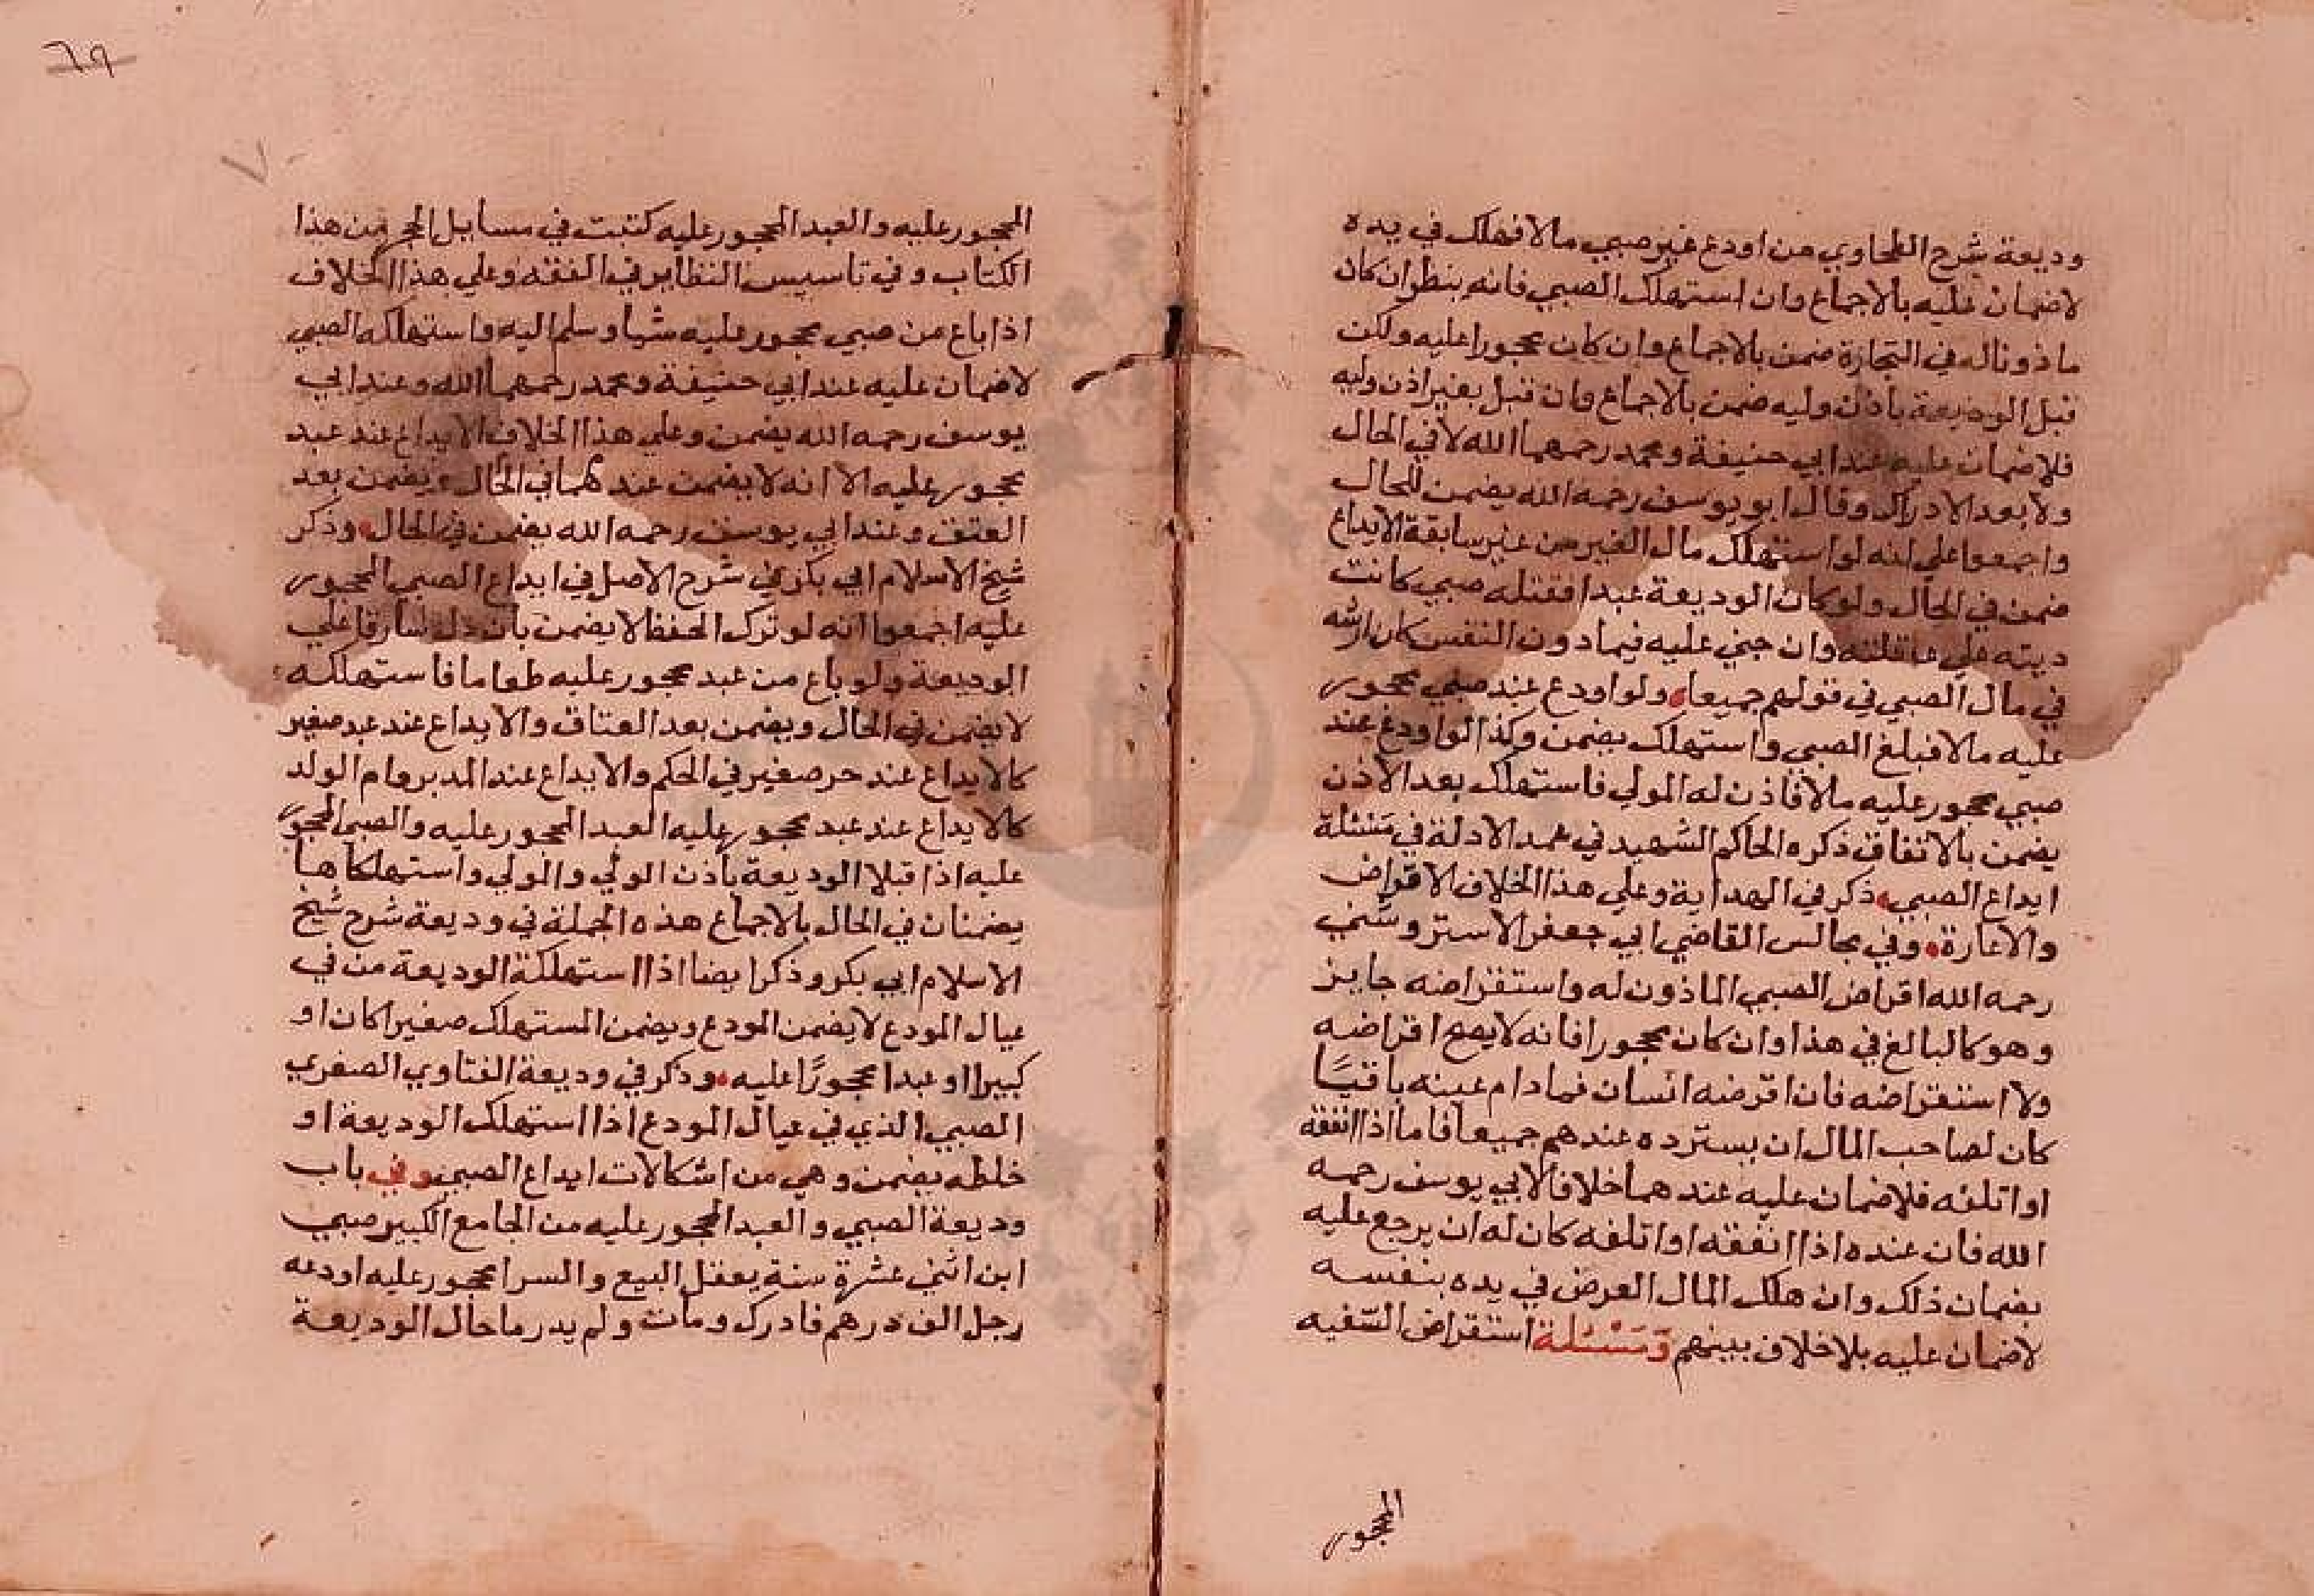 وديعة شرح الطحاوي من اودع غير صبي مالا فهلك في يده
لا ضمان عليه بالاجماع وان استهلك الصبي فانه ينظر ان كان
ماذونا له في التجارة ضمن بالاجماع وان كان محجورا عليه ولكن
قبل الوديعة باذن وليه ضمن بالاجماع وان قبل بغير اذن وليه
فلا ضمان عليه عند ابي حنيفة ومحمد رحمهما الله لا في الحال
ولا بعد الادراك وقال ابو يوسف رحمه الله يضمن للحال
واجمعوا على انه لو استهلك مال الغير من غير سابقة الايداع
ضمن في الحال ولو كان الوديعة عبدا فقتله صبي كانت
ديته علي عاقلته وان جني عليه فيما دون النفس كان ارشه
في مال الصبي في قولهم جميعا ولو اودع عند صبي محجور
عليه مالا فبلغ الصبي واستهلك يضمن وكذا لو اودع عند
صبي محجور عليه مالا فاذن له المولي فاستهلك بعد الاذن
يضمن بالاتفاق ذكره الحاكم الشهيد في عمد الادلة في مسئلة
ايداع الصبي ذكر في الهداية وعلي هذا الخلاف الاقراض
والاعارة وفي مجالس القاضي ابي جعفر الاستروشني
رحمه الله اقراض الصبي الماذون له واستقراضه جايز
وهو كالبالغ في هذا وان كان محجورا فانه لا يصح اقراضه
ولا استقراضه فان اقرضه انسان فما دام عينه باقيا
كان لصاحب المال ان يسترده عندهم جميعا فاما اذا انفقه
او اتلفه فلا ضمان عليه عندهما خلافا لابي يوسف رحمه
الله فان عنده اذا انفقه او اتلفه كان له ان يرجع عليه
بضمان ذلك وان هلك المال العرض في يده بنفسه
لا ضمان عليه بلا خلاف بينهم ومسئلة استقراض السفيه
المحجور
٦٩
٧٠
المحجور عليه والعبد المحجور عليه كتبت في مسايل الحجر من هذا
الكتاب وفي تاسيس النظاير في الفقه وعلي هذا الخلاف
اذا باع من صبي محجور عليه شيا وسلم اليه واستهلكه الصبي
لا ضمان عليه عند ابي حنيفة ومحمد رحمهما الله وعند ابي
يوسف رحمه الله يضمن وعلي هذا الخلاف الايداع عند عبد
محجور عليه الا انه لا يضمن عندهما في الحال ويضمن بعد
العتق وعند ابي يوسف رحمه الله يضمن في الحال وذكر
شيخ الاسلام ابي بكر في شرح الاصل في ايداع الصبي المحجور
عليه اجمعوا انه لو ترك الحفظ لا يضمن بان دل سارقا علي
الوديعة ولو باع من عبد محجور عليه طعاما فاستهلكه
لا يضمن في الحال ويضمن بعد العتاق والايداع عند عبد صغير
كالايداع عند حر صغير في الحكم والايداع عند المدبر وام الولد
كالايداع عند عبد محجور عليه العبد المحجور عليه والصبي المحجور
عليه اذا قبلا الوديعة باذن الولي والمولي واستهلكاها
يضمنان في الحال بالاجماع هذه الجملة في وديعة شرح شيخ
الاسلام ابي بكر وذكر ايضا اذا استهلكة الوديعة من في
عيال المودع لا يضمن المودع ويضمن المستهلك صغيرا كان او
كبيرا او عبدا محجورا عليه وذكر في وديعة الفتاوي الصغري
الصبي الذي في عيال المودع اذا استهلك الوديعة او
خلطه يضمن وهي من اشكالات ايداع الصبي وفي باب
وديعة الصبي والعبد المحجور عليه من الجامع الكبير صبي
ابن اثني عشرة سنة يعقل البيع والسرا محجور عليه اودعه
رجل الف درهم فادرك ومات ولم يدر ما حال الوديعة